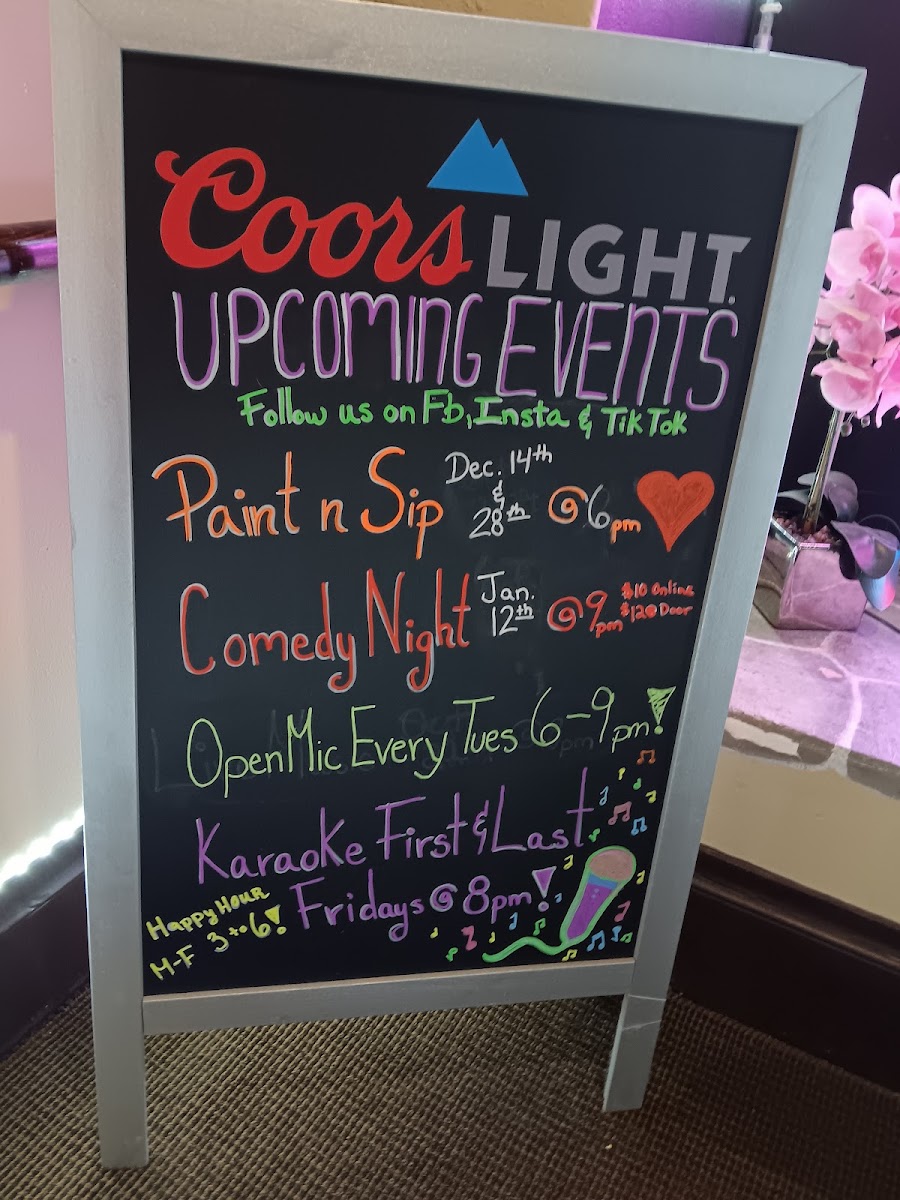 Coors LIGHT
UPCOMING EVENTS
Follow us on Fb, Insta & TikTok
Paint n Sip Dec. 14th & 28th @ 6pm
Comedy Night Jan. 12th @ 9pm $10 Online $12@Door
Open Mic Every Tues 6-9pm!
Karaoke First & Last
Fridays @ 8pm!
Happy Hour
M-F 3 to 6!